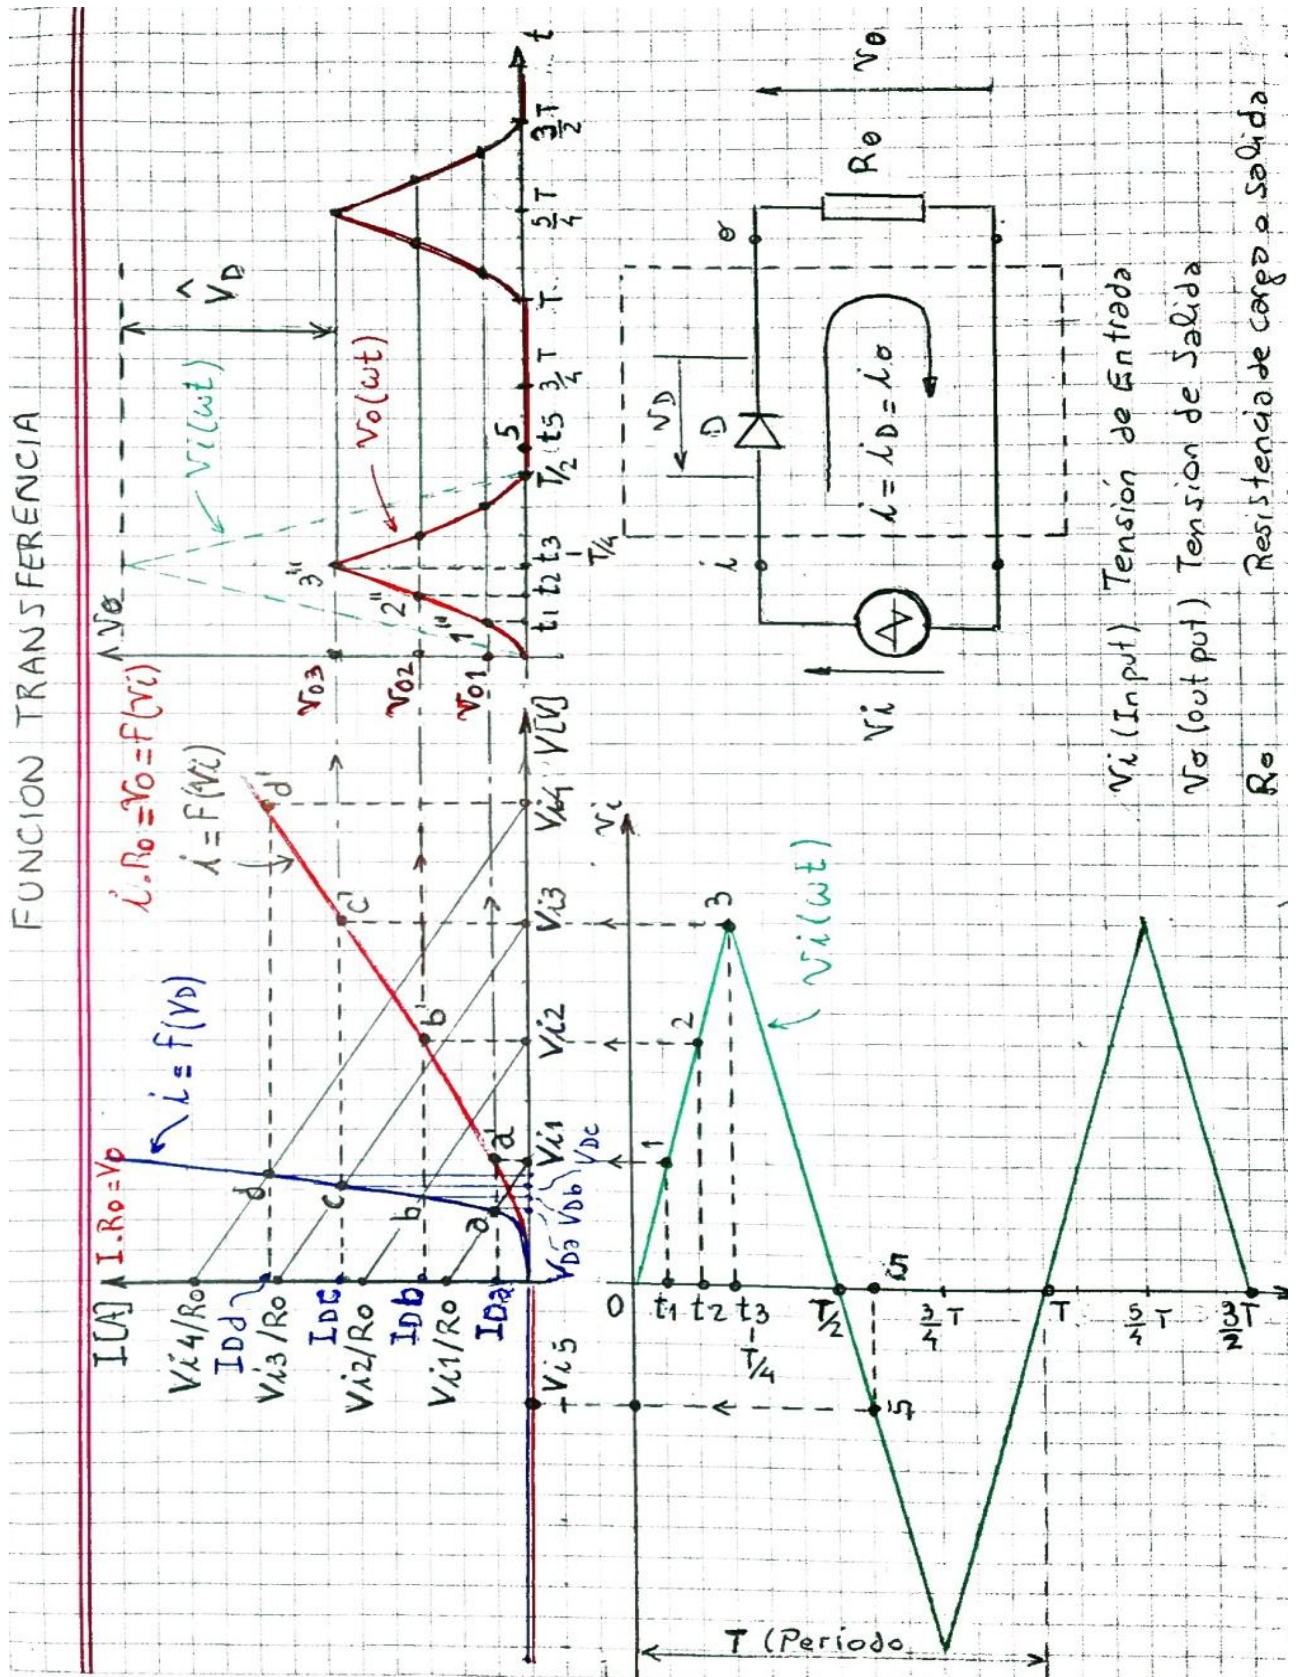 FUNCION TRANSFERENCIA
I[A]
I.Ro=Vo
i=f(VD)
i.Ro=Vo=F(Vi)
i=F(Vi)
Vi4/Ro
IDd
Vi3/Ro
IDc
Vi2/Ro
IDb
Vi1/Ro
IDa
d
c
b
a
d'
c'
b'
a'
-Vi5
VDa
VDb
VDc
Vi1
Vi2
Vi3
Vi4
V[V]
Vo
Vo3
Vo2
Vo1
3"
2"
1"
Vi(wt)
Vo(wt)
V̂D
t1
t2
t3
T/4
T/2
5
t5
3/4 T
T
5/4 T
3/2 T
t
vi
0
t1
t2
t3
T/4
T/2
3/4 T
T
5/4 T
3/2 T
1
2
3
5
Vi(wt)
T (Período
Vi
i
VD
D
i=iD=io
o
Ro
Vo
Vi (Input) Tensión de Entrada
Vo (output) Tension de Salida
Ro Resistencia de carga o salida